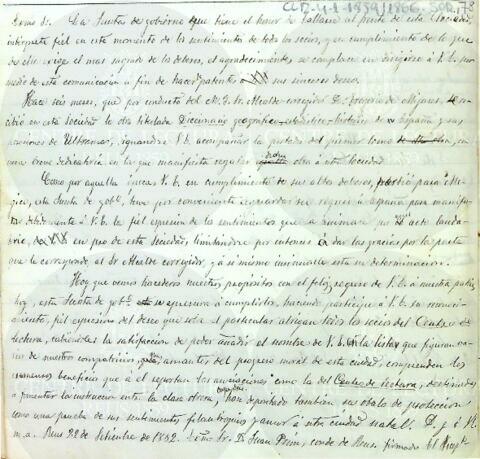 CL D-4-1-1859/1866. S02, 178
Ecsmo Sr. La Junta de gobierno que tiene el honor de hallarse al frente de esta Sociedad,
intérprete fiel en este momento de los sentimientos de todos los socios, y en cumplimiento de lo que
de ella exige el mas sagrado de los deberes, el agradecimiento se complace en dirigirse á V.E. por
medio de esta comunicacion a fin de hacerle patentes sus sinceros deseos.
Hace seis meses, que por conducto del M. I. Sr Alcalde corregidor D. Gregorio de Mijares, re-
cibió en esta Sociedad la obra titulada Diccionario geográfico-estadístico-histórico de España y sus
posesiones de Ultramar, dignandose V.E. acompañar la portada del primer tomo de dha obra, con
una breve dedicatoria en la que manifiesta regalar dicha obra á esta Sociedad
Como por aquella época V.E. en cumplimiento de sus altos deberes, partió para Mé-
gico, esta Junta de gobo, tuvo por conveniente aguardar su regreso á España para manifes-
tar debidamente á V.E. la fiel espresion de los sentimientos que la animaron por aquel acto lauda-
ble, en pro de esta Sociedad, limitandose por entonces á dar las gracias por la parte
que le corresponde al Sr Alcalde corregidor, y á sí mismo insinuarle esta su determinacion.
Hoy que vemos hacederos nuestros propósitos con el feliz regreso de V.E. á nuestra patria,
hoy, esta Junta de gobo se apresura á cumplirlos, haciendo partícipe á V.E. su reconoci-
miento, fiel espresion del deseo que sobre el particular abrigan todos los socios del Centro de
Lectura, cabiendoles la satisfaccion de poder añadir el nombre de V.E. á la lista que figuran va-
rios de nuestros compatricios, que, amantes del progreso moral de esta ciudad, comprenden los
inmensos beneficios que á él reportan las asociaciones como la del Centro de Lectura, destinadas
á fomentar la instruccion entre la clase obrera, han depositado tambien su óbolo de proteccion
como una prueba de sus sentimientos filantrópicos y amor á esta ciudad natal. D. g. á V.E.
m. a. Reus 22 de Setiembre de 1862. Ecsmo Sr. D. Juan Prim, conde de Reus. firmado El Presite